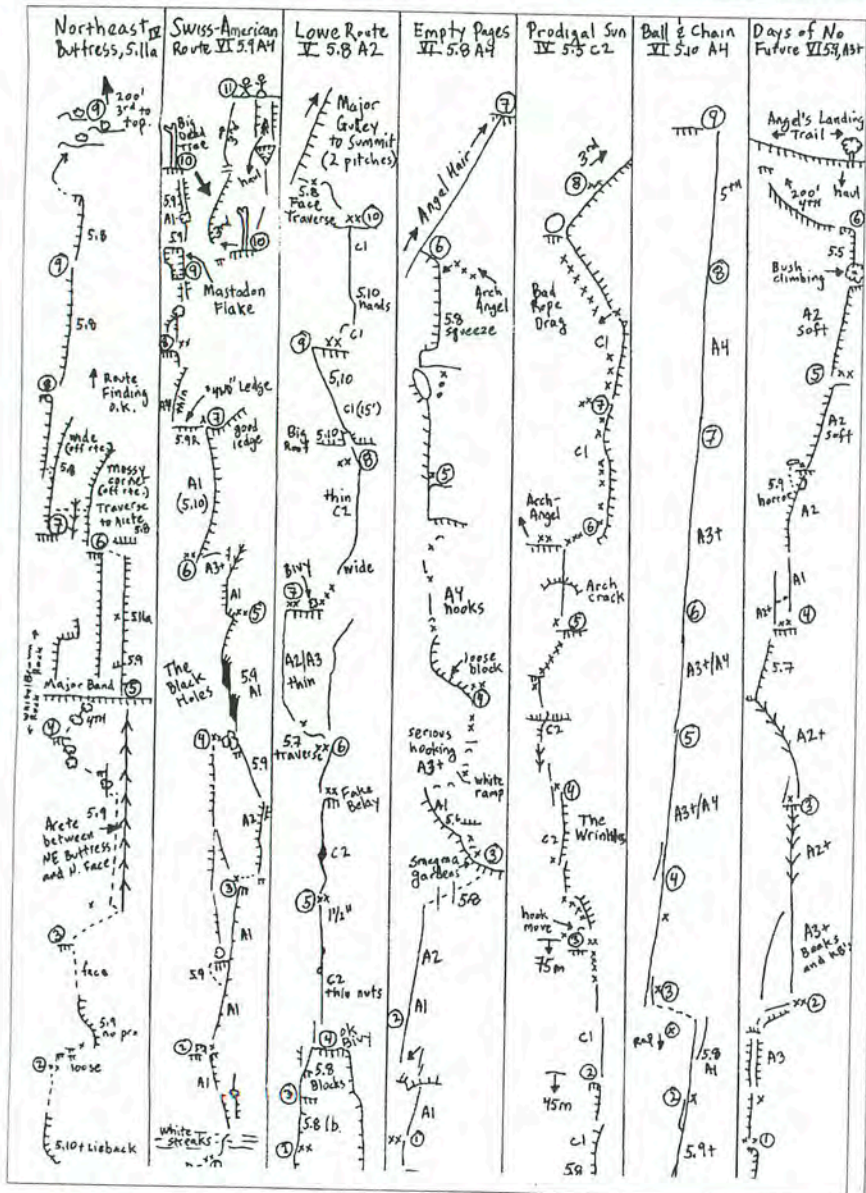 Northeast IV
Buttress, 5.11a
9
200'
3rd to
top.
5.8
9
5.8
8
Route
Finding
o.k.
wide
(off rte.)
5.8
Mossy
corner
(off rte.)
Traverse
to Arete
5.8
7
6
5.11a
5.9
Major Band
5
4
4TH
5.9
Arete
between
NE Buttress
and N. Face
2
face
5.9
no pro
2
loose
5.10+ Lieback
Swiss-American
Route VI 5.9 A4
11
Big
Dead
Tree
10
3rd
haul
5.9
A1
5.9
3rd
10
9
Mastadon
Flake
8
thin
A4
Ledge
7
5.9R
good
ledge
A1
(5.10)
6
A3+
A1
5
The
Black
Holes
5.9
A1
4
5.9
A2
3
A1
5.9
A1
2
5.9
A1
white
streaks
Lowe Route
V 5.8 A2
Major
Gulley
to Summit
(2 pitches)
5.8
Face
Traverse
10
C1
5.10
hands
C1
9
5.10
C1 (15')
Big
Root
5.10
8
thin
C2
wide
Bivy
7
A2/A3
thin
5.7
traverse
6
Fake
Belay
C2
5
1 1/2"
C2
thin nuts
4
ok
Bivy
5.8
Blocks
3
5.8
Empty Pages
VI 5.8 A4
7
Angel Hair
6
Arch
Angel
5.8
squeeze
5
A4
hooks
loose
block
4
serious
hooking
A3+
white
ramp
A1
5.6
3
Smegma
gardens
5.8
A2
2
A1
A1
1
Prodigal Sun
IV 5.5 C2
3rd
8
Bad
Rope
Drag
C1
7
C1
Arch-
Angel
6
Arch
crack
5
C2
4
The
Wrinkles
C2
hook
move
3
75m
C1
2
45m
C1
5.8
Ball & Chain
VI 5.10 A4
9
5TH
8
A4
7
A3+
6
A3+/A4
5
A3+/A4
4
3
Rap
5.8
A1
2
5.9+
Days of No
Future VI 5.9, A3+
Angel's Landing
Trail
haul
200'
4TH
6
5.5
Bush
climbing
A2
soft
5
A2
soft
5.9
horror
A2
A1
A2+
4
5.7
A2+
3
A2+
A3+
Beaks
and KB's
2
A3
1